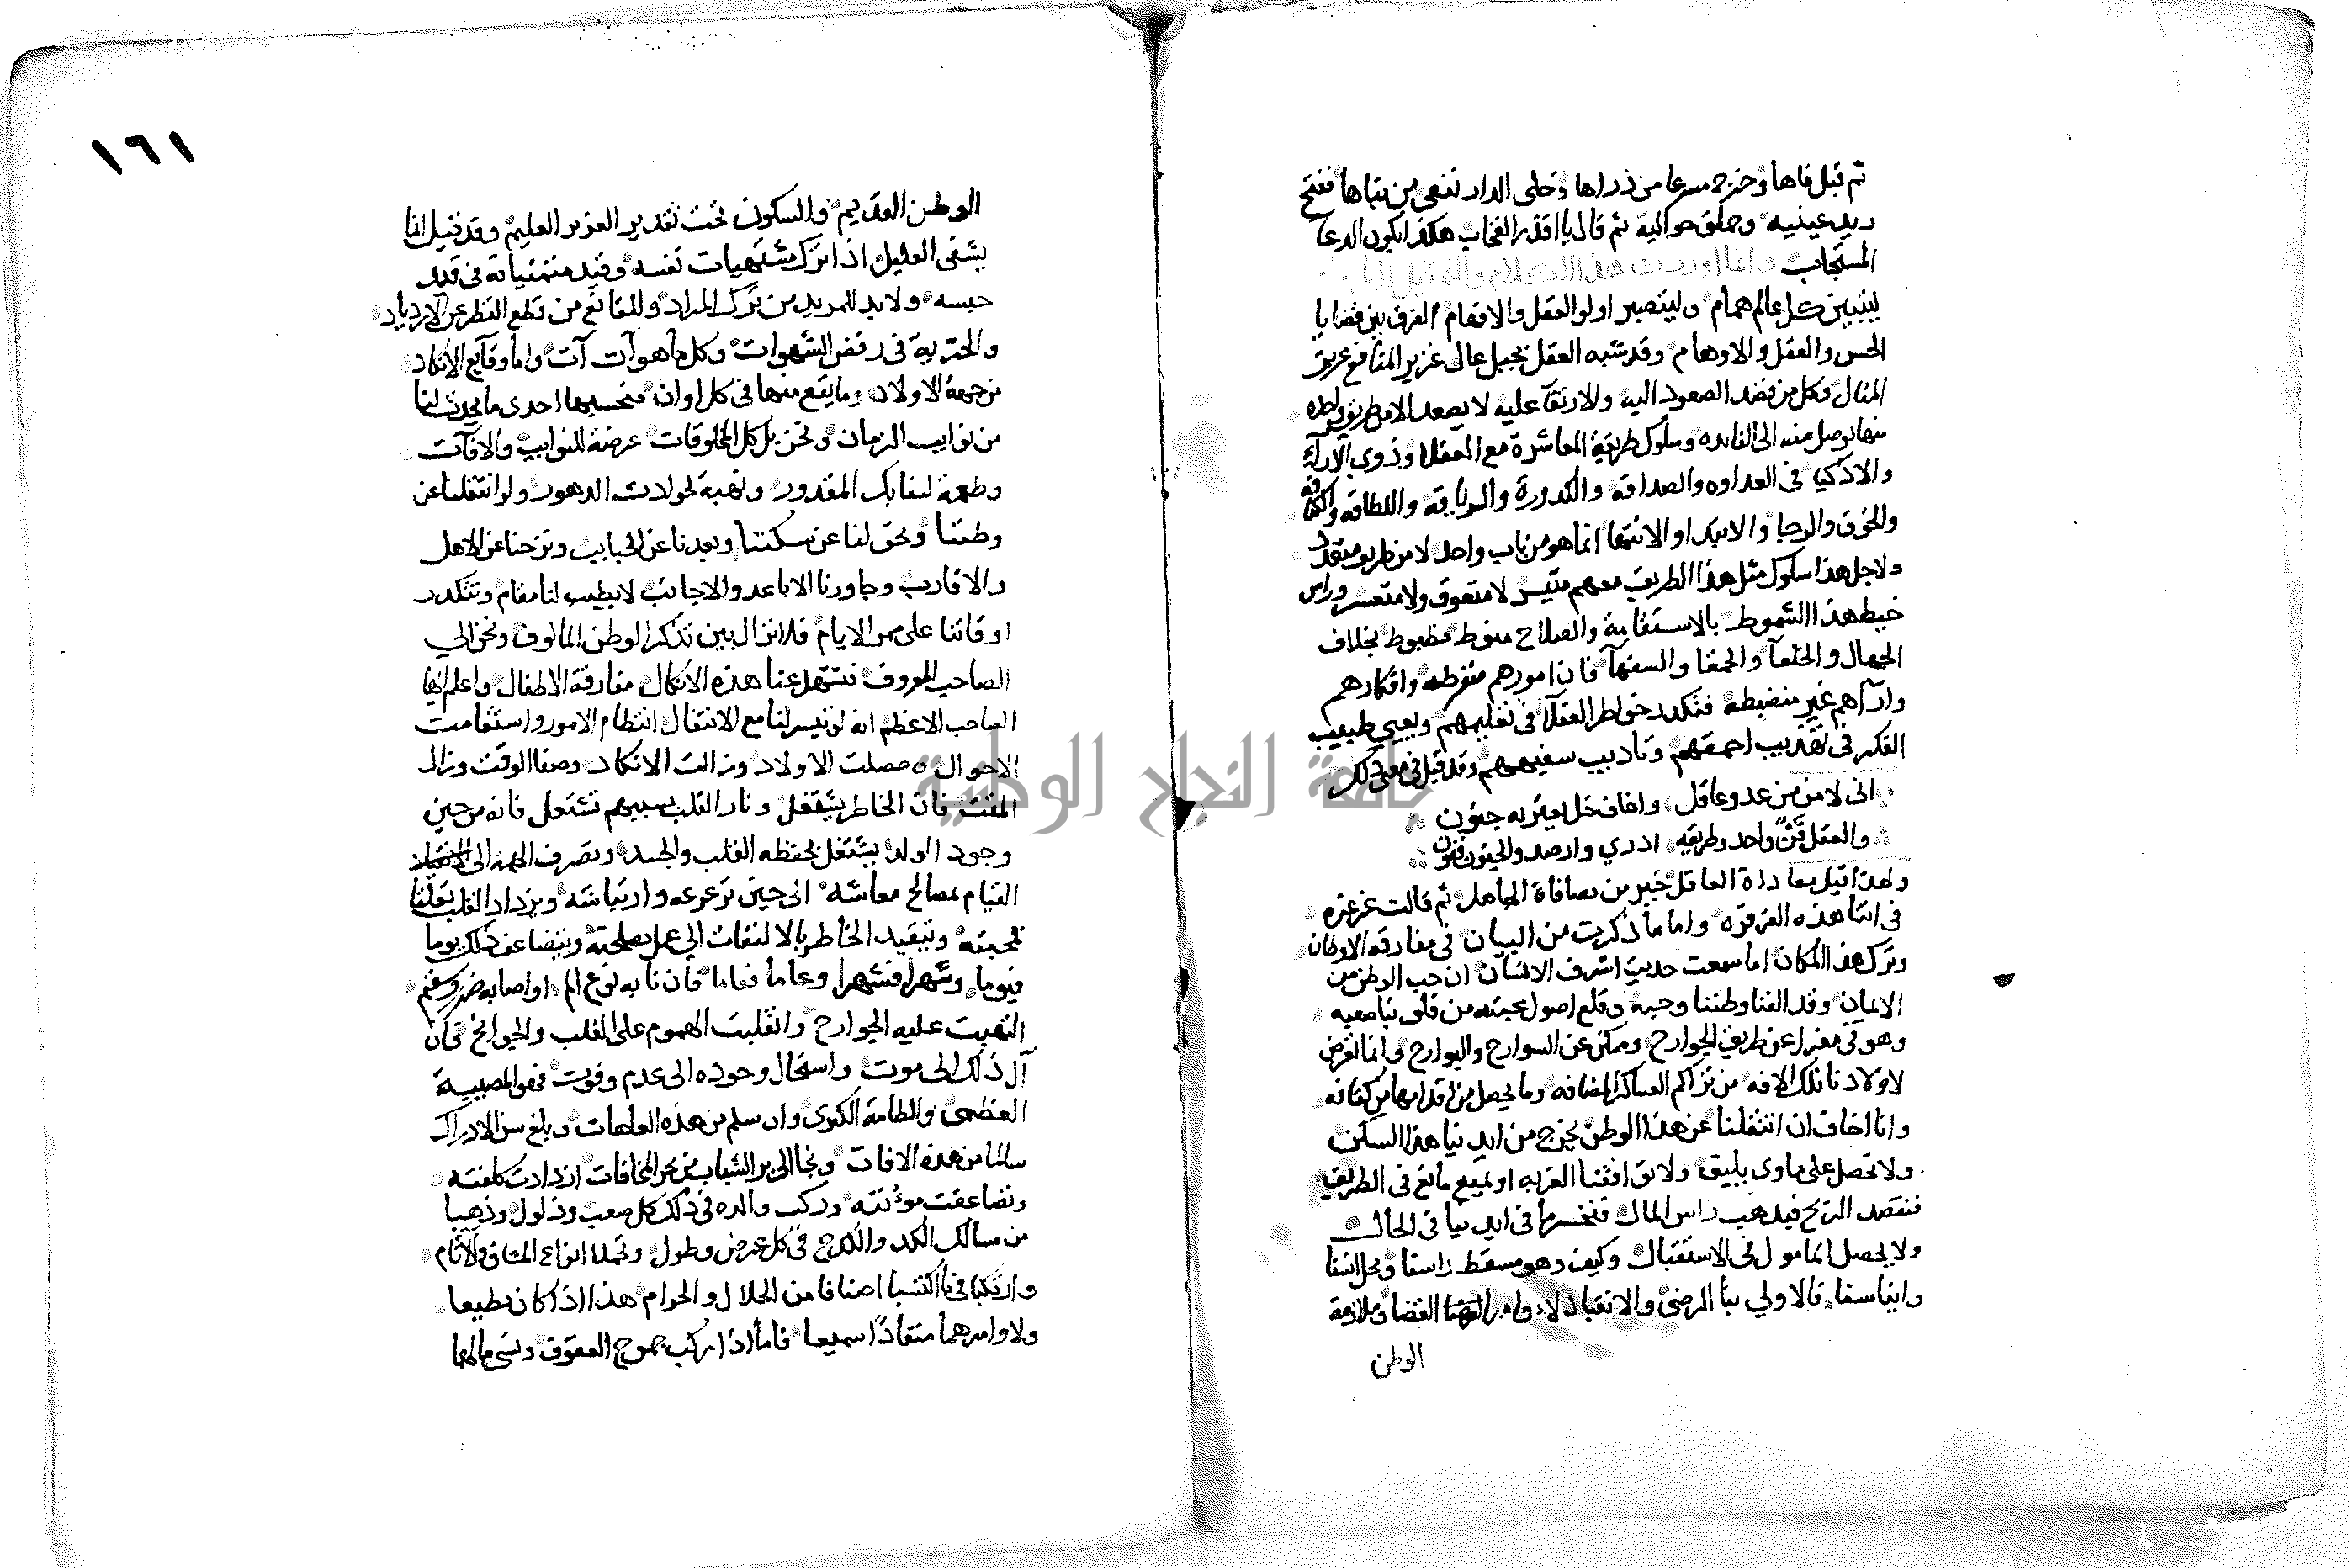 ثم قبل فاها وخرج مسرعا من ذراها وخلى الدار تنعى من بناها ففتح
زيد عينيه وحملق حواليه ثم قال يا اقذر القحاب هكذا يكون الدعا
المستجاب وانما اوردت هذا الكلام والتمثيل
ليتبين كل عالم همام وليتصير اولو العقل والافهام الفرق بين قضايا
الحس والعقل والاوهام وقد شبه العقل بجبل عالى غزير المنافع عزيز
المنال وكل من قصد الصعود اليه والارتقآ عليه لا يصعد الا من طريق واحده
منها يوصل منه الى الفايده وسلوك طريقة المعاشرة مع العقلا وذوى الآرآء
والاذكيا فى العداوه والصداقه والكدورة والرياقه واللطافه والكثافه
والخوف والرجا والابتدا او الانتها انما هو من باب واحد لا من طريق متعدد
ولاجل هذا سلوك مثل هذا الطريق معهم متيسر لا متعوق ولا متعسر وراس
خيط هذا الشموط بالاستقامة والصلاح منوط مظبوط بخلاف
الجهال والخلعآ والحمقا والسفهآ فان امورهم منفرطه وافكارهم
وارآهم غير منضبطه فتكدد خواطر العقلآ فى تعليمهم ويعيي طبيب
الفكر فى تهذيب احمقهم وتاديب سفيههم وقد قيل فى معنى ذلك
انى لامن من عدو عاقل واخاف خل يعتريه جنون
والعقل فن واحد وطريقه ادري وارصد والجنون فنون
ولهذا قيل معاداة العاقل خير من مصافاة الجاهل ثم قالت غرغره
فى اثنا هذه القرقره واما ما ذكرت من البيان فى مفارقه الاوطان
وترك هذا المكان اما سمعت حديث اشرف الانسان ان حب الوطن من
الايمان وقد الفنا وطننا وحبه وقلع اصول محبته من قلوبنا صعبه
وهو فى معزل عن طريق الجوارح ومكمن عن السوارح والبوارح وانما تعرض
لاولادنا تلك الافه من تراكم العساكر المضافه وما يحصل من اقدامها من كثافه
وانا اخاف ان انتقلنا عن هذا الوطن يخرج من ايدينا هذا السكن
ولا تحصل على ماوى يليق ولا توافقنا الغربه او يمنع مانع فى الطريق
فنقصد الربح فيذهب راس المال فنخسر ما فى ايدينا فى الحال
ولا يحصل المامول فى الاستقبال وكيف وهو مسقط راسنا ومحل انسنا
وايناسنا فالاولي بنا الرضى والانقياد لاوامر القضا وملازمة
الوطن
١٦١
الوطن القديم والسكون تحت تقدير العزيز العليم وقد قيل انما
يشفى العليل اذا ترك مشتهيات نفسه وقيد متمنياته فى قيد
حبسه ولا بد للمريد من ترك المراد وللقانع من قطع النظر عن الازدياد
والحريه فى رفض الشهوات وكل ما هو آت آت واما وقايع الانكاد
من جهة الاولاد وما يقع منها فى كل اوان فنحسبها احدى ما يحدث لنا
من نوايب الزمان ونحن بل كل المخلوقات عرضة للنوايب والافآت
وطعمة لسنابك المقدور ونهبة لحوادث الدهور ولو انتقلنا عن
وطننا وتحولنا عن سكننا وبعدنا عن الحبايب ونزحنا عن الاهل
والاقارب وجاورنا الاباعد والاجانب لا يطيب لنا مقام وتتكدر
اوقاتنا على ممر الايام فلا نزال بين تذكر الوطن المالوف ونحن الي
الصاحب المعروف فتسهل عنا هذه الانكال مفارقة الاطفال واعلم ايها
الصاحب الاعظم انه لو تيسر لنا مع الانتقال انتظام الامور واستقامت
الاحوال وحصلت الاولاد وزالت الانكاد وصفا الوقت وزال
المقت فان الخاطر يشتغل ونار القلب بسببهم تشتعل فانه من حين
وجود الولد يشتغل بحفظه القلب والجسد وتصرف الهمه الى
القيام بمصالح معاشه الى حين ترعرعه وارتياشه ويزداد القلب تعلقا
بمحبته وتتقيد الخاطر بالالتفات الي عمل مصلحته ويتضاعف ذلك يوما
فيوما وشهرا فشهرا وعاما فعاما فان نابه نوع الم او اصابه ضر وسقم
التهبت عليه الجوارح وانقلبت الهموم على القلب والجوانح فان
آل ذلك الى موت واستحال وجوده الى عدم وفوت فهو المصيبة
العظمى والطامة الكبرى وان سلم من هذه العاهات وبلغ سن الادراك
سالما من هذه الافات ونجا الى بر الشباب من بحر المخافات ازدادت كلفته
وتضاعفت مؤنته وركب والده فى ذلك كل صعب وذلول وذهبا
من مسالك الكد والكدح فى كل عرض وطول وتحملا انواع المشاق والاثام
وارتكبا فيما اكتسبا اصنافا من الحلال والحرام هذا اذا كان مطيعا
ولاوامرهما منقادًا سميعا فاما اذا ركب جموح العقوق ونسى ما لهما
جامعة النجاح الوطنية